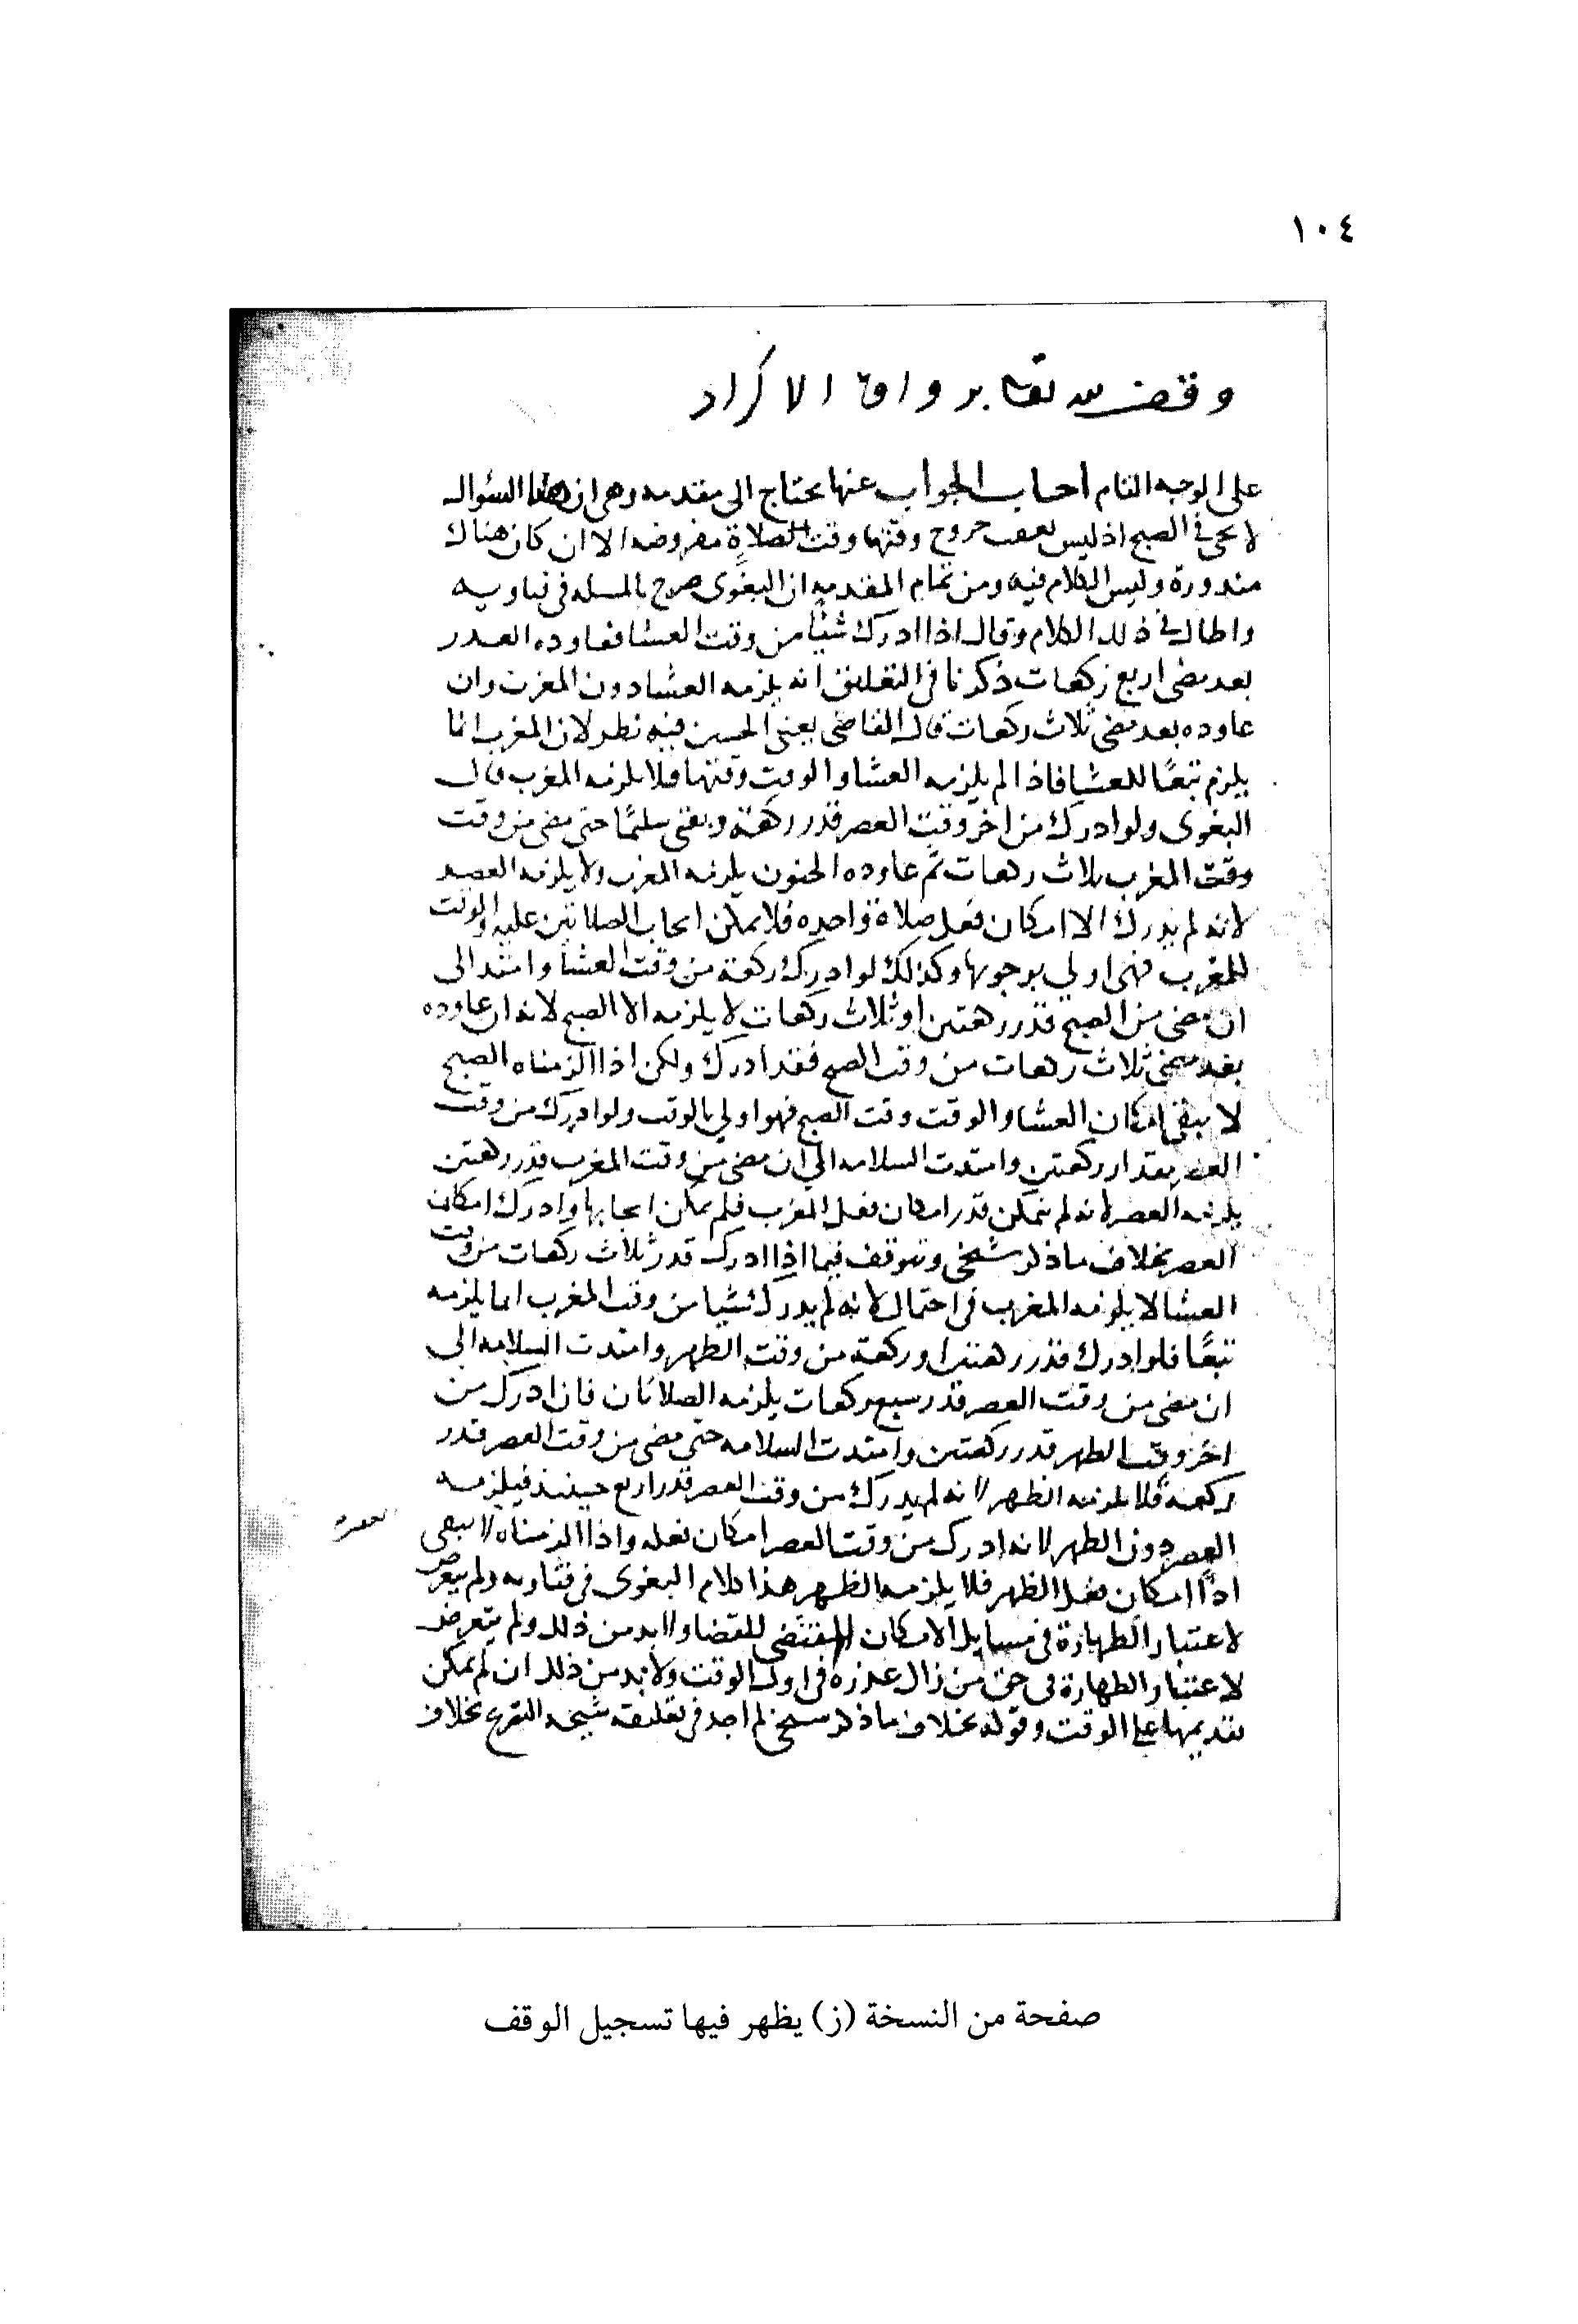 ١٠٤
وقف لله تعالى برواق الاكراد
على الوجه التام اجاب الجواب عنها يحتاج الى مقدمه وهي ان هذا السؤال
لا يجي في الصبح اذ ليس بعقب خروج وقتها وقت الصلاة مفروضه الا ان كان هناك
منذورة وليس الكلام فيه ومن تمام المقدمه ان البغوى صرح بالمسله في فتاويه
واطال في ذلك الكلام وقال اذا ادرك شيًا من وقت العشا فعاوده العذر
بعد مضى اربع ركعات ذكرنا في التعليق انه يلزمه العشا دون المغرب وان
عاوده بعد مضى ثلاث ركعات قال القاضي يعني الحسين فيه نظر لان المغرب انما
يلزم تبعًا للعشا فاذا لم يلزمه العشا والوقت وقتها فلا يلزمه المغرب قال
البغوى ولو ادرك من اخر وقت العصر قدر ركعة وبقى سليمًا حتى مضى من وقت
وقت المغرب ثلاث ركعات ثم عاوده الجنون يلزمه المغرب ولا يلزمه العصر
لانه لم يدرك الا امكان فعل صلاة واحده فلا يمكن ايجاب الصلاتين عليه والوقت
للمغرب فهى اولي بوجوبها وكذلك لو ادرك ركعة من وقت العشا وامتد الى
ان مضى من الصبح قدر ركعتين او ثلاث ركعات لا يلزمه الا الصبح لانه ان عاوده
بعد مضى ثلاث ركعات من وقت الصبح فقد ادرك ولكن اذا الزمناه الصبح
لا يبقى امكان العشا والوقت وقت الصبح فهو اولي بالوقت ولو ادرك من وقت
العصر بقدار ركعتين وامتدت السلامه الي ان مضى من وقت المغرب قدر ركعتين
يلزمه العصر لانه لم يتمكن قدر امكان فعل المغرب فلم يمكن ايجابها وادرك امكان
العصر بخلاف ما ذكر شيخى وتوقف فيما اذا ادرك قدر ثلاث ركعات من وقت
العشا لا يلزمه المغرب في احتمال لانه لم يدرك شيا من وقت المغرب انما يلزمه
تبعًا فلو ادرك قدر ركعتين او ركعة من وقت الظهر وامتدت السلامه الي
ان مضى من وقت العصر قدر سبع ركعات يلزمه الصلاتان فان ادرك من
اخر وقت الظهر قدر ركعتين وامتدت السلامه حتى مضى من وقت العصر قدر
ركعة فلا يلزمه الظهر لانه لم يدرك من وقت العصر قدر اربع حينئذ فيلزمه
العصر دون الظهر لانه ادرك من وقت العصر امكان فعله واذا الزمناه لا يبقى
اذًا امكان فعل الظهر فلا يلزمه الظهر هذا كلام البغوى في فتاويه ولم يتعرض
لاعتبار الطهارة في مسايل الامكان المقتضى للقضا ولا بد من ذلك ولم يتعرض
لاعتبار الطهارة في حق من زال عذره في اول الوقت ولا بد من ذلك ان لم يمكن
تقديمها على الوقت وقوله بخلاف ما ذكر شيخى لم اجد في تعليقة شيخه التفريع بخلاف
صفحة من النسخة (ز) يظهر فيها تسجيل الوقف